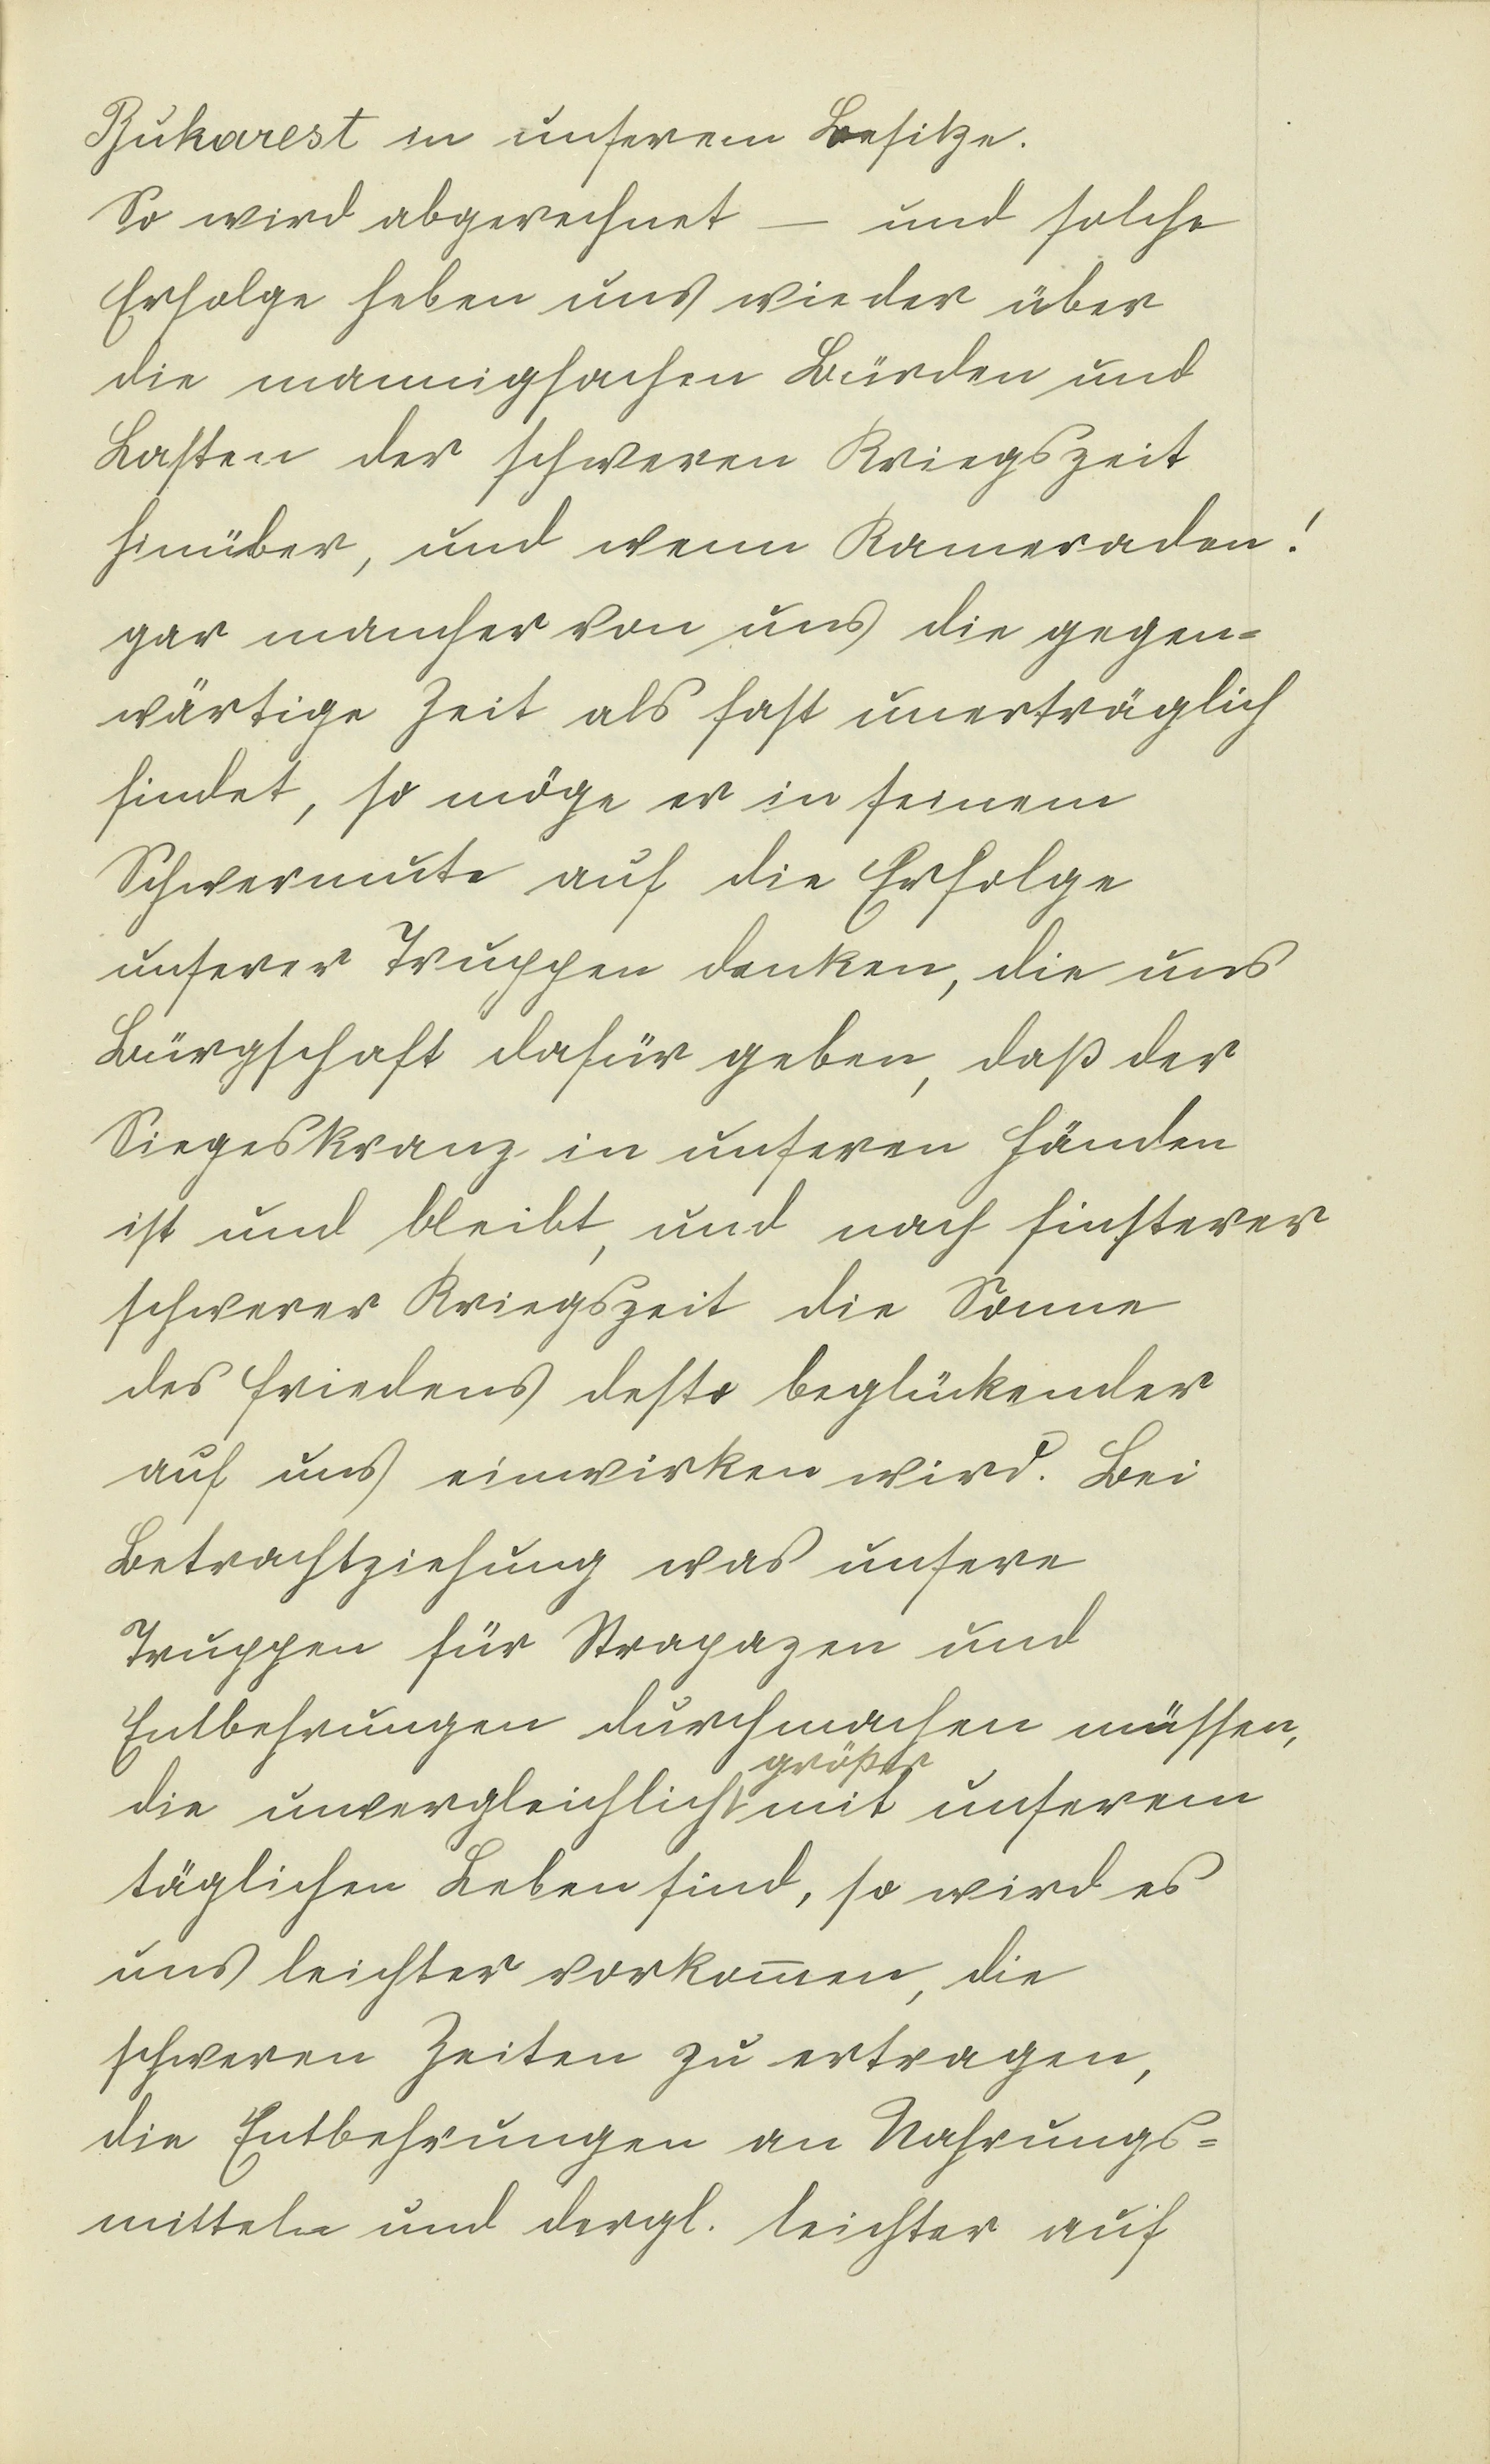 Bukarest in unserem Besitze.
So wird abgerechnet — und solche
Erfolge heben uns wieder über
die mannigfachen Bürden und
Lasten der schweren Kriegszeit
hinüber, und wenn Kameraden!
gar mancher von uns die gegen=
wärtige Zeit als fast unerträglich
findet, so möge er in seinem
Schwermute auf die Erfolge
unserer Truppen denken, die uns
Bürgschaft dafür geben, daß der
Siegeskranz in unseren Händen
ist und bleibt, und nach finsterer
schwerer Kriegszeit die Sonne
des Friedens desto beglückender
auf uns einwirken wird. Bei
Betrachtziehung was unsere
Truppen für Strapazen und
Entbehrungen durchmachen müssen,
größer
die unvergleichlich mit unserem
täglichen Leben sind, so wird es
uns leichter vorkom̅en, die
schweren Zeiten zu ertragen,
die Entbehrungen an Nahrungs=
mitteln und dergl. leichter auf